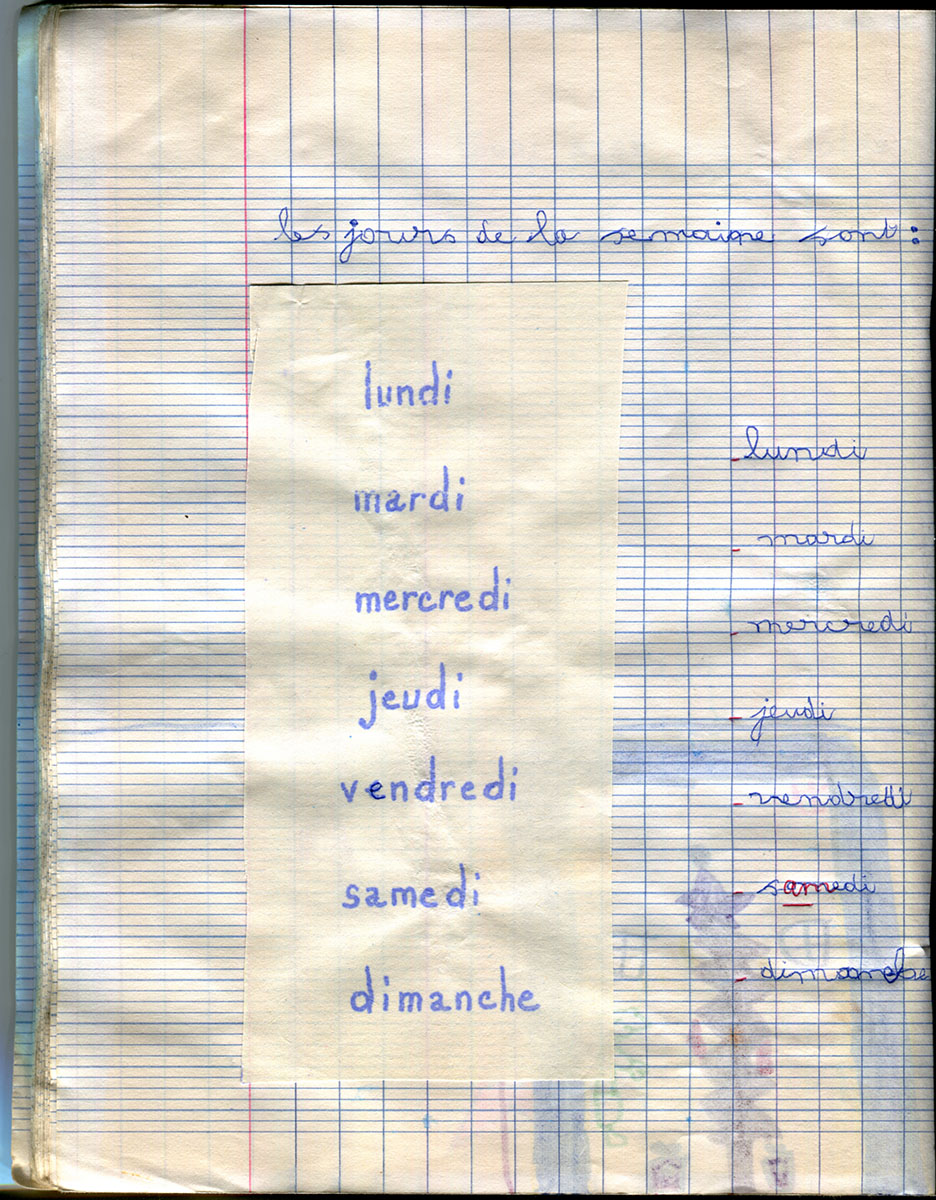 les jours de la semaine sont :
lundi
mardi
mercredi
jeudi
vendredi
samedi
dimanche
- lundi
- mardi
- mercredi
- jeudi
- vendredi
- samedi
- dimanche